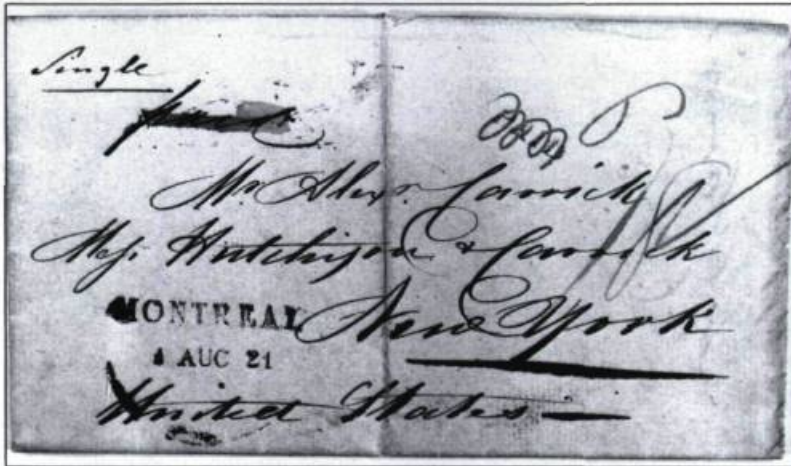 Single
Mr. Alexr. Carrick
Messrs. Hutchison & Carrick
New York
MONTREAL
1 AUC 21
United States